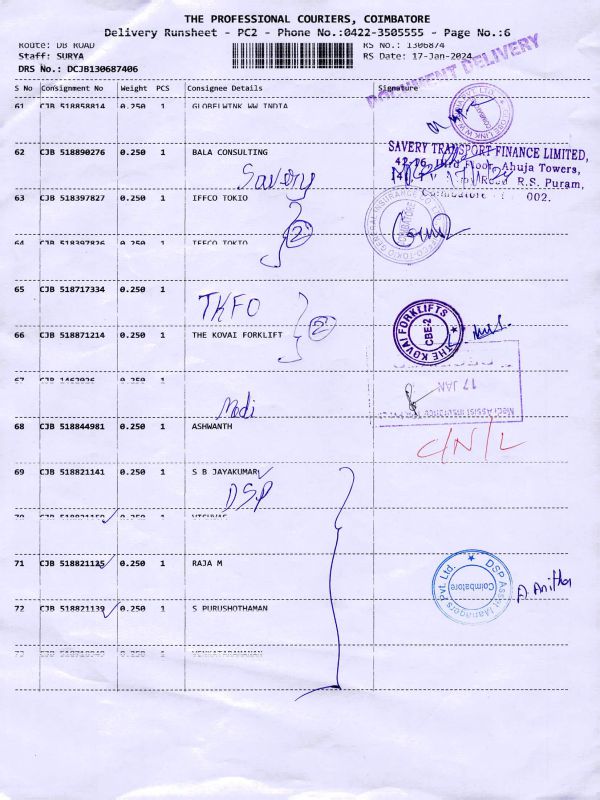 THE PROFESSIONAL COURIERS, COIMBATORE
Delivery Runsheet - PC2 - Phone No.:0422-3505555 - Page No.:6
Route: DB ROAD RS No.: 1306874
Staff: SURYA RS Date: 17-Jan-2024
DRS No.: DCJB130687406
DOCUMENT DELIVERY
S No Consignment No Weight PCS Consignee Details Signature
61 CJB 518858814 0.250 1 GLOBELWINK WW INDIA
62 CJB 518890276 0.250 1 BALA CONSULTING
SAVERY TRANSPORT FINANCE LIMITED,
Floor, Ahuja Towers,
R.S. Puram,
002.
Savery
63 CJB 518397827 0.250 1 IFFCO TOKIO
2
64 CJB 518397826 0.250 1 IFFCO TOKIO
65 CJB 518717334 0.250 1
TKFO
2
66 CJB 518871214 0.250 1 THE KOVAI FORKLIFT
THE KOVAI FORKLIFTS
CBE-2
67 CJB 0.250 1
17 JAN
Medi
68 CJB 518844981 0.250 1 ASHWANTH
C/N/L
69 CJB 518821141 0.250 1 S B JAYAKUMAR
DSP
70 CJB 518821150 0.250 1 VISHVAS
71 CJB 518821125 0.250 1 RAJA M
DSP Asset Managers Pvt. Ltd.
Coimbatore
A. Anitha
72 CJB 518821139 0.250 1 S PURUSHOTHAMAN
73 CJB 0.250 1 VENKATARAMANAN